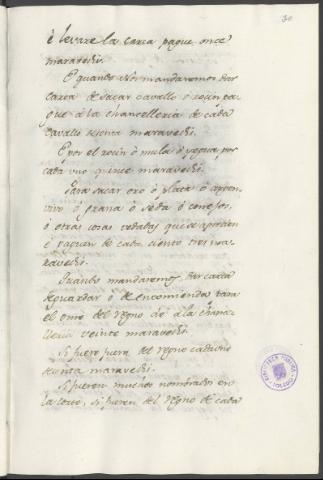 30
è levare la carta pague once
maravedis.
E quando Nos mandaremos dar
carta de sacar cavallo ò rocin pa-
gue à la chancelleria de cada
cavallo treinta maravedis.
E por el rocin ò mula ò yegua, por
cada uno quince maravedis.
Para sacar oro ò plata ò argen
vivo ò grana ò seda ò conejos,
ò otras cosas vedadas
è paguen de cada ciento tres ma-
ravedis.
Quando mandaremos dar carta
de guardar ò de encomienda para
el ome del regno de à la chance-
lleria veinte maravedis.
Si fuere fuera del regno
treinta maravedis.
Si fueren muchos nombrados en
la carta, si fueren del regno de cada